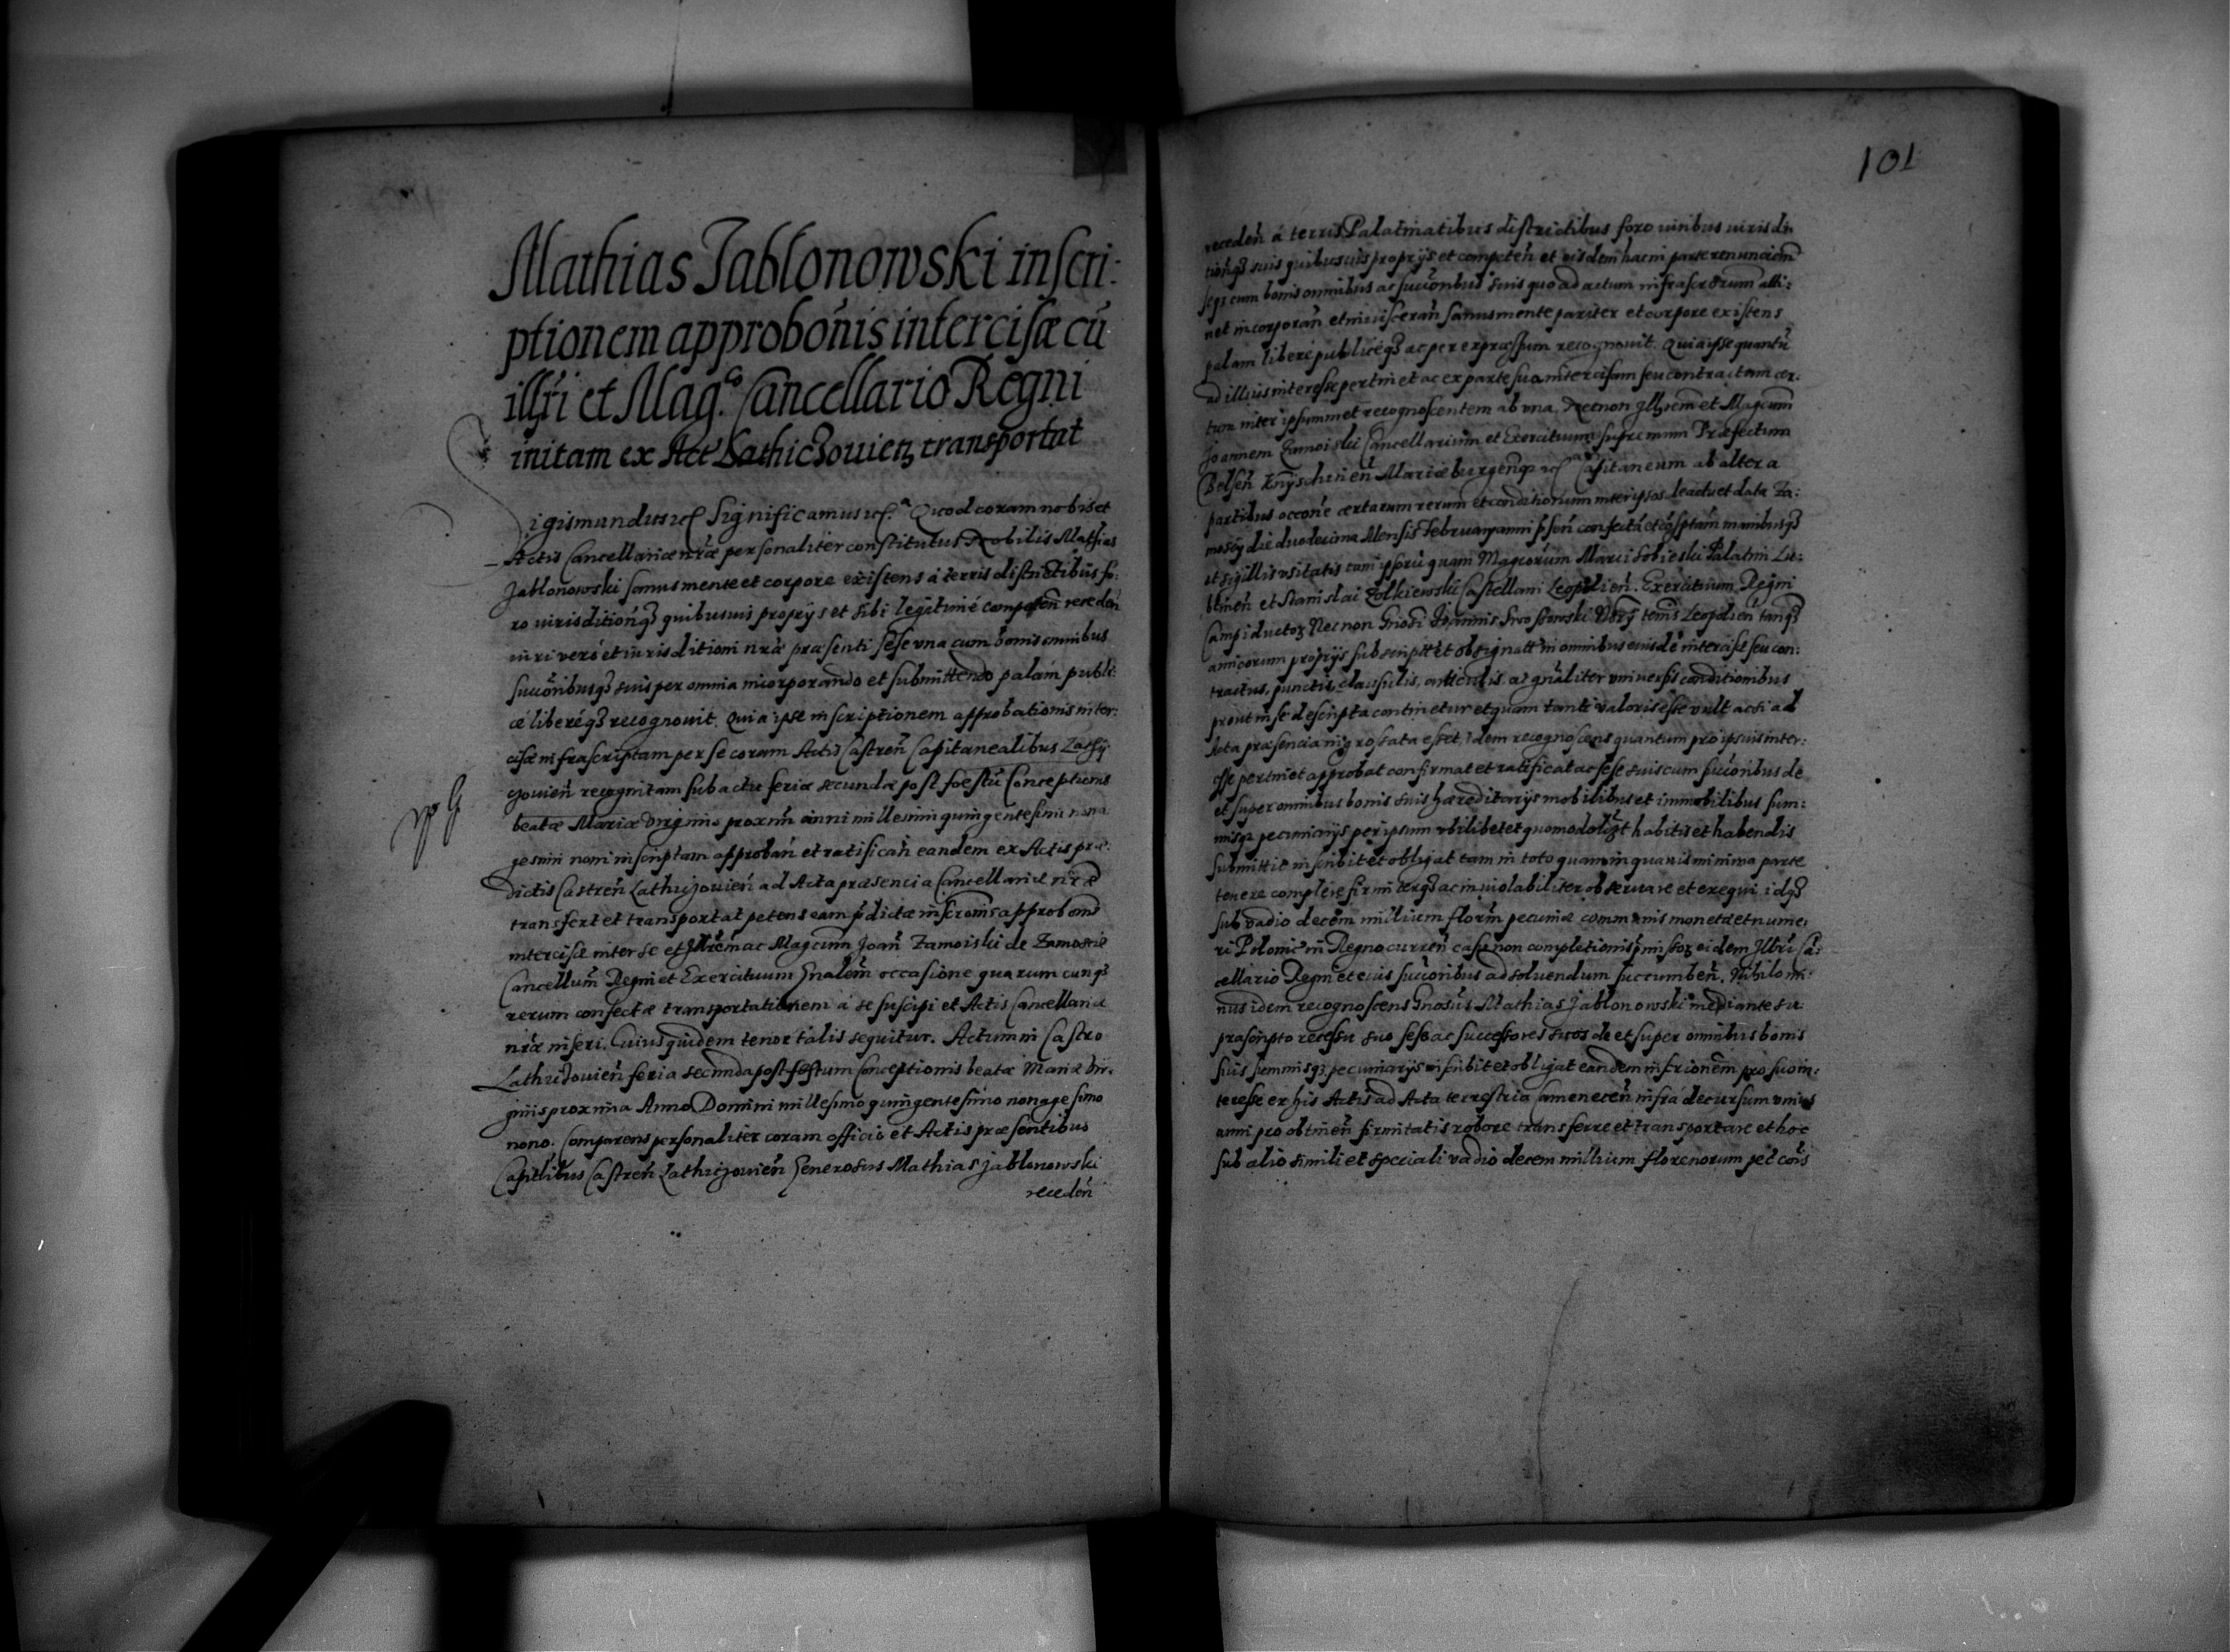 Mathias Jablonowski inscri:
ptionem approbõnis intercisæ cũ
illr̃i et Mag.co Cancellario Regni
initam ex Act Lathiczouieñ transportat
Sigismundus etc Significamus etc.a Quod coram nobis et
Actis Cancellariæ nr̃æ personaliter constitutus Nobilis Mathias
Jablonowski sanus mente et corpore existens á terris districtibus fo:
ro iurisditionq3 quibusuis proprijs et sibi legitimé competeñ receden
iuri veró et iurisditioni nr̃æ præsenti sese vna cum bonis omnibus
succoribusq3 suis per omnia incorporando et submittendo palám publi:
cé liberéq3 recognouit. Quia ipse inscriptionem approbationis inter:
cisæ infrascriptam per se coram Actis Castreñ Capitanealibus Lathy
czouieñ recognitam sub actu feriæ secundæ post foestũ Conceptionis
beatæ Mariæ Virginis proximi anni millesimi quingentesimi nona
gesimi noni inscriptam approbañ et ratificañ eandem ex Actis præ:
dictis Castreñ Lathiczouieñ ad Acta præsencia Cancellariæ nr̃æ
transfert et transportat petens eam p̃dictæ inscrõnis approbõnis
intercisæ inter se et Illr̃em ac Magcum Joañ Zamoiski de Zamoscie
Cancellum Regni et Exercituum Gnalem occasione quarumcunq3
rerum confectæ transportationem á se suscipi et Actis Cancellariæ
nr̃æ inseri. Cuius quidem tenor talis sequitur. Actum in Castro
Lathiczouieñ feria secunda post festum Conceptionis beatæ Mariæ Vir:
ginis proxima Anno Domini millesimo quingentesimo nonagesimo
nono. Comparens personaliter coram officio et Actis præsentibus
Capitlibus Castreñ Lathiczouieñ Generosus Mathias Jablonowski
receden
101
receden á terris Palatinatibus districtibus foro iuribus iurisdi
tionq3 suis quibusuis proprijs et competeñ et eisdem hac in parte renuncian
seq3 cum bonis omnibus ac succoribus suis quo ad actum infrascriptum atti:
net incorporañ et inuisceran sanus mente pariter et corpore existens
palam liberé publicéq3 ac per expressum recognouit. Quia ipse quantũ
ad illius interesse pertinet ac ex parte sua intercisam seu contractum cer:
tum inter ipsummet recognoscentem ab vna, Necnon Illrem et Magcum
Joannem Zamoiski Cancellarium et Exercituum supremum Præfectum
Belseñ Knyschineñ Mariæburgenq3 etc Capitaneum ab altera
partibus occõne certarum rerum et conditionum inter ipsos leactu et data Za:
moscij die duodecima Mensis Februarij anni p̃sen confectã et
et sigillis vsitatis tam ipsorũ quam Magcorum Marci Sobieski Palatini Lu:
blineñ et Stanislai Zolkiewski Castellani Leopolieñ. Exercituum Regni
Campiductor Necnon Gnosi Joannis Swoszowski Nory terris Leopolieñ tanq3
amicorum proprijs subscriptt et obsignatt in omnibus eiusdé intercisæ seu con:
tractus, punctis, clausulis, articulis, ac gnaliter vniuersis conditionibus
prout in se descripta continetur et quam tanti valoris esse vult acsi ad
Acta præsencia ingrossata esset. Idem recognoscens quantum pro ipsius inter:
esse pertinet approbat confirmat et ratificat ac sese suis cum succoribus de
et super omnibus bonis suis hæreditarijs mobilibus et immobilibus sum:
misq3 pecuniarijs per ipsum vbilibet et quomodolibet habitis et habendis
submittit inscribit et obligat tam in toto quam in quauis minima parte
tenere complere firmiterq3 ac inuiolabiliter obseruare et exequi idq3
sub vadio decem millium florñ pecuniæ communis monetæ et nume:
ri Polonic in Regno curreñ casu non completionis p̃missor eidem Illri Cã:
cellario Regni et eius succoribus ad soluendum succumbeñ. Nihilomi:
nus idem recognoscens Gnosus Mathias Jablonowski mediante su
prascripto recessu suo sese ac successores suos de et super omnibus bonis
suis summisq3 pecuniarijs inscribit et obligat eandem inscrionem pro suo in:
teresse ex his Actis ad Acta terrestria Camenecen infrá decursum vnius
anni pro obtineñ firmitatis robore transferre et transportare et hoc
sub alio simili et speciali vadio decem millium florenorum pec cõis